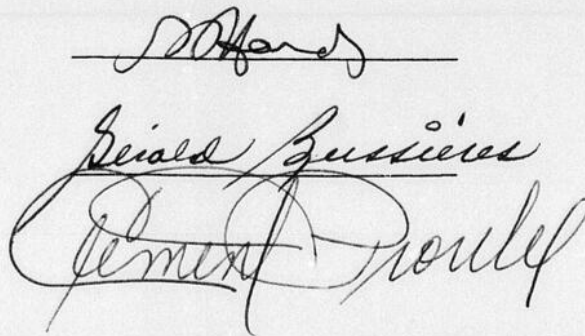 Gérald Bussières
Clément Proulx